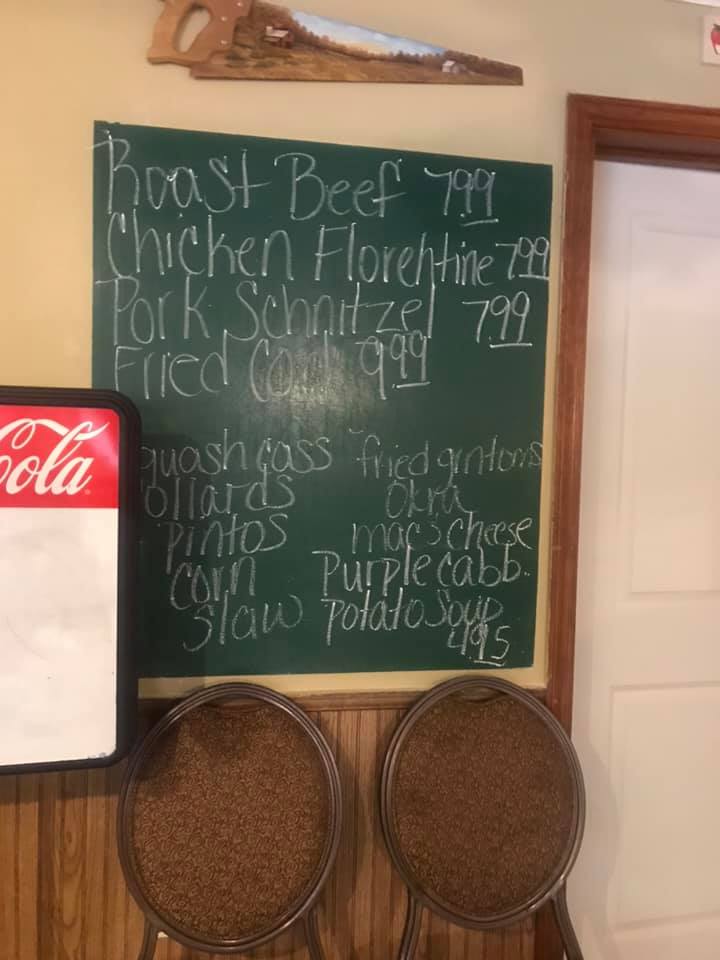 Roast Beef 7.99
Chicken Florentine 7.99
Pork Schnitzel 7.99
Fried Cod 9.99
quash cass
ollards
pintos
corn
slaw
fried grntoms
Okra
mac & cheese
Purple cabb.
potato soup
4.95
Cola